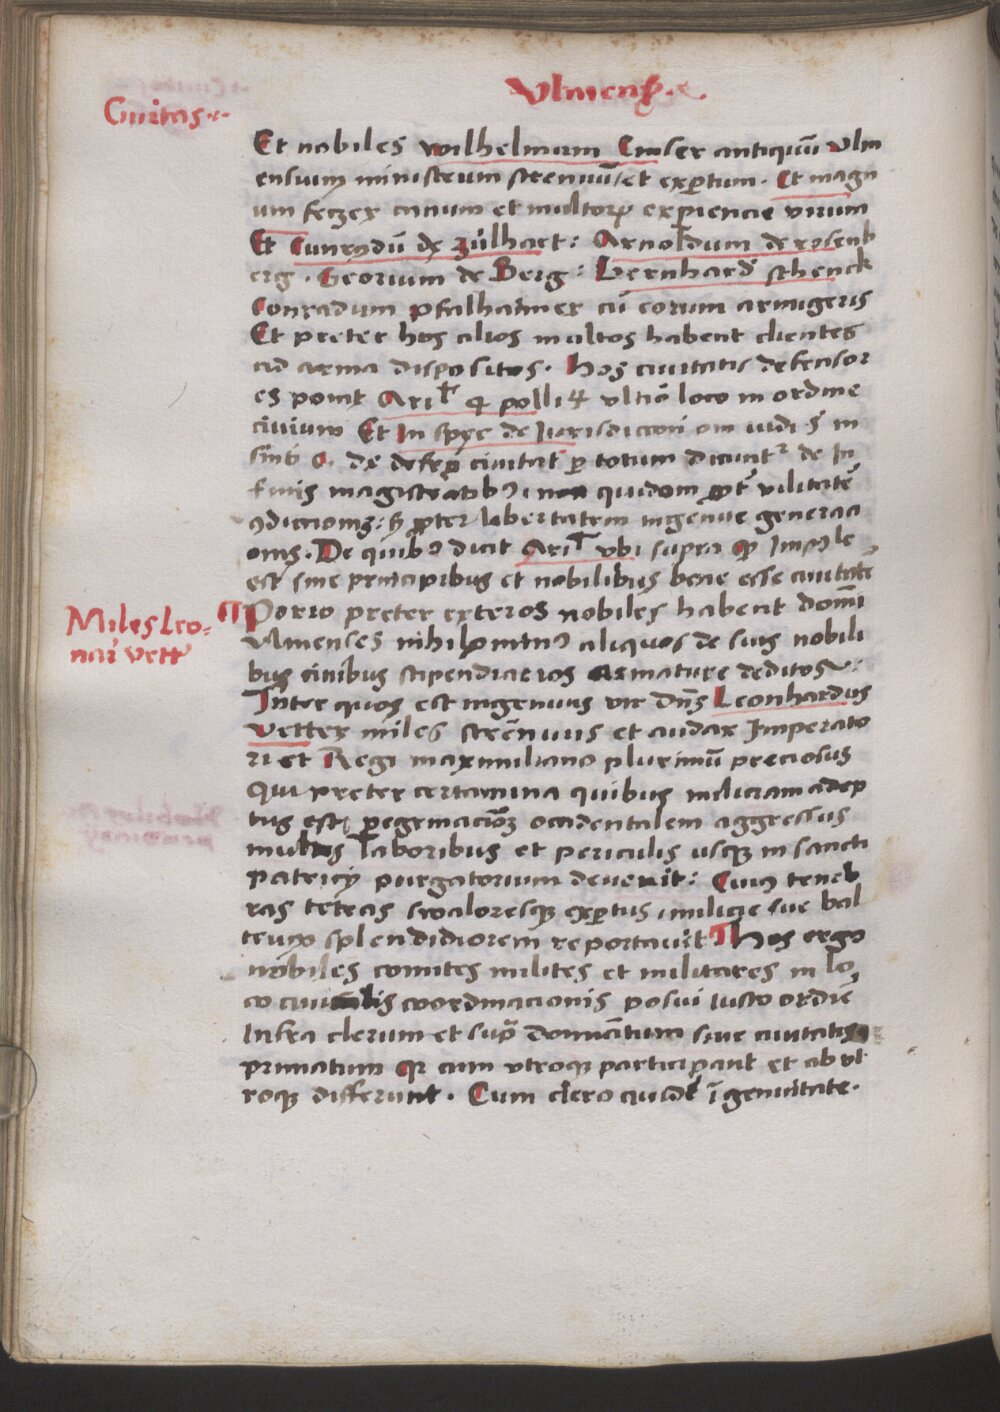 Ciuitas
Vlmenſ
Et nobiles wilhelmum Emſer antiquū Vlm
enſium miniſtrum ſtrennuū / et expertum. Et magn
um feczer canum et multorꝝ experiencie virum
Et Cunrydū de zülhart: Arnoldum de roſenb
erg. Georium de Berg: Bernhard ſchenck
Conradum pfalhaimer cū eorum armigeris
Et preter hos alios multos habent clientes
ad arma diſpoſitos. Hos ciuitatis defenſor
es ponit Ariſt 4 polliꝝ vltīo loco in ordine
ciuium Et In ſpec de Iurisdiccōi om iudi in
ſinb de defēſ ciuitat ꝑ totum dicuntr de In
fimis magiſtratibꝰ non quidem ꝓpt vilitatē
ꝯdicciomꝫ: ſꝫ ꝓpter libertatem ingenue generaci
onis. De quibꝰ dicit Ariſt vbi ſupra ꝙ Impoſle
eſt ſine principibus et nobilibus bene eſſe ciuitatē
Miles Leo-
nar vett
Porro preter exteros nobiles habent domī
Vlmenſes nihilominꝰ aliquos de ſuis nobili
bus ciuibus ſtipendiarios armature deditos:
Inter quos eſt ingenuus vir dns Leonhardus
Vetter miles ſtrēnuus et audax Imperato
ri et Regi maximiliano plurimū precioſus
Qui preter certamina quibus miliciam adep
tus eſt, ꝑegrinacionꝫ occidentalem aggreſſus
multis laboribus et periculis uſqꝫ in ſancti
patricij purgatorium deuenit: Cuiꝰ teneb
ras tetras ſqualoresqꝫ exꝑtus, milicie ſue bal
teum ſplendidiorem reportauit Hos ergo
nobiles comites milites et militares in lo
co ciuilis coordinacionis poſui iuſto ordīe
Infra clerum et ſupra dominātium ſiue ciuitatis
primatum Qꝛ cum vtroqꝫ participant et ab vt
roqꝫ differunt. Cum clero quidē ī genuitate.